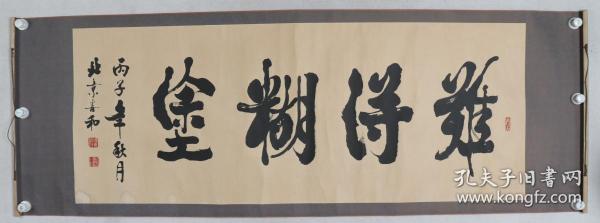 難得糊塗
丙子年秋月
北京春和
孔夫子旧书网
www.kongfz.com